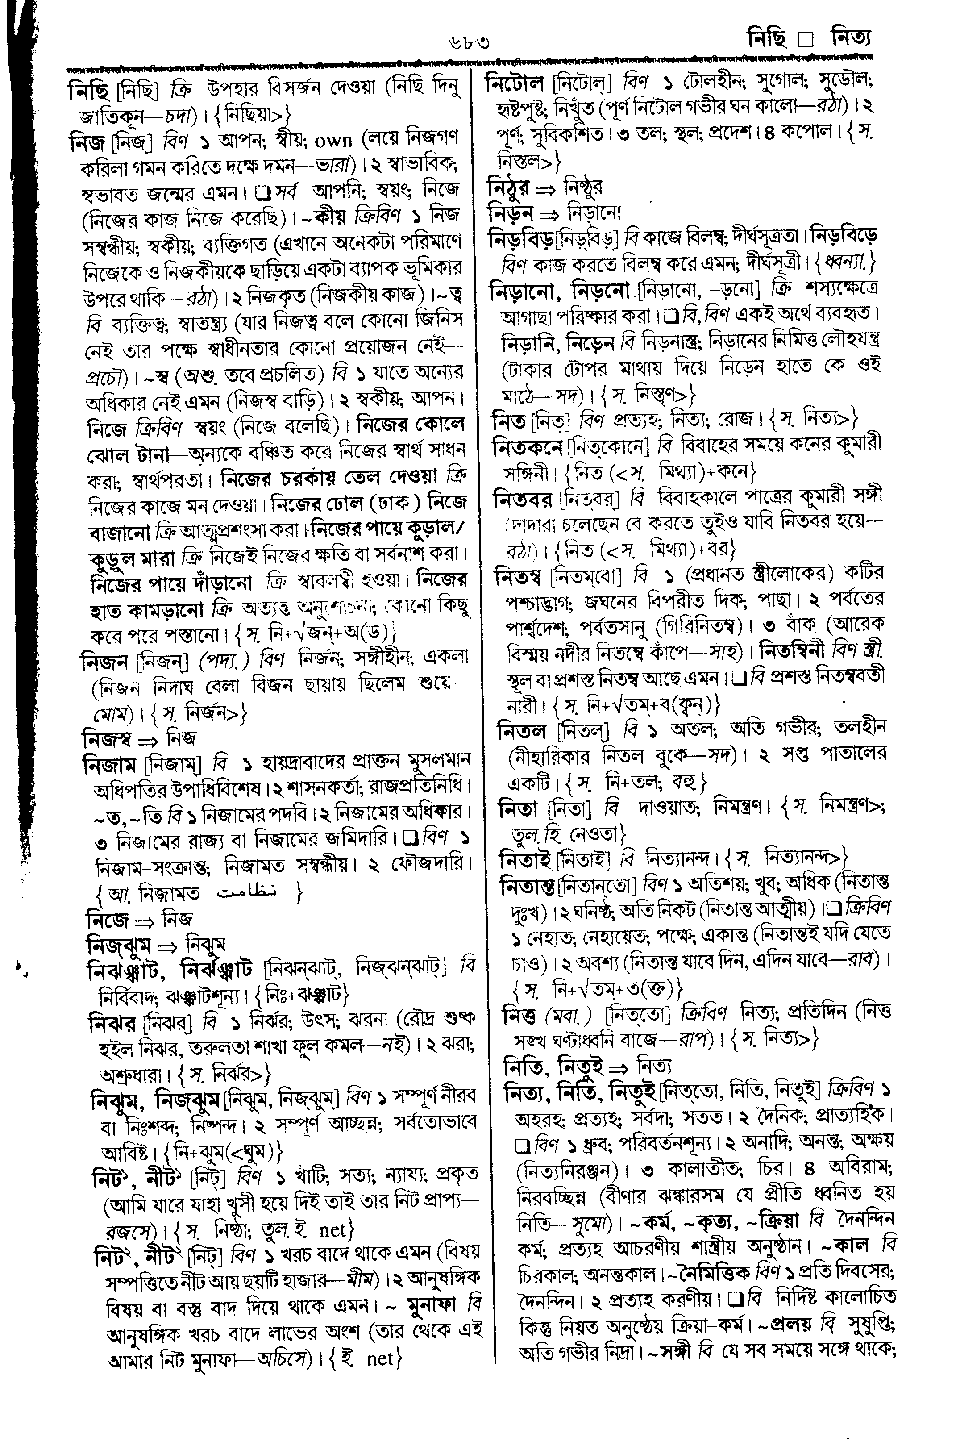 ৬৮৩
নিছি □ নিত্য
নিছি [নিছি] ক্রি উপহার বিসর্জন দেওয়া (নিছি দিনু
জাতিকূন—চদা)। {নিছিয়া>}
নিজ [নিজ্] বিণ ১ আপন; স্বীয়; own (লয়ে নিজগণ
করিলা গমন করিতে দক্ষে দমন—ভারা)। ২ স্বাভাবিক;
স্বভাবত জন্মের এমন। ❑ সর্ব আপনি; স্বয়ং; নিজে
(নিজের কাজ নিজে করেছি)। ~কীয় ক্রিবিণ ১ নিজ
সম্বন্ধীয়; স্বকীয়; ব্যক্তিগত (এখানে অনেকটা পরিমাণে
নিজেকে ও নিজকীয়কে ছাড়িয়ে একটা ব্যাপক ভূমিকার
উপরে থাকি—রঠা)। ২ নিজকৃত (নিজকীয় কাজ)। ~ত্ব
বি ব্যক্তিত্ব; স্বাতন্ত্র্য (যার নিজত্ব বলে কোনো জিনিস
নেই তার পক্ষে স্বাধীনতার কোনো প্রয়োজন নেই—
প্রচৌ)। ~স্ব (অশু. তবে প্রচলিত) বি ১ যাতে অন্যের
অধিকার নেই এমন (নিজস্ব বাড়ি)। ২ স্বকীয়; আপন।
নিজে ক্রিবিণ স্বয়ং (নিজে বলেছি)। নিজের কোলে
ঝোল টানা—অন্যকে বঞ্চিত করে নিজের স্বার্থ সাধন
করা; স্বার্থপরতা। নিজের চরকায় তেল দেওয়া ক্রি
নিজের কাজে মন দেওয়া। নিজের ঢোল (ঢাক) নিজে
বাজানো ক্রি আত্মপ্রশংসা করা। নিজের পায়ে কুড়াল/
কুড়ুল মারা ক্রি নিজেই নিজের ক্ষতি বা সর্বনাশ করা।
নিজের পায়ে দাঁড়ানো ক্রি স্বাবলম্বী হওয়া। নিজের
হাত কামড়ানো ক্রি অত্যন্ত অনুশোচনা; কোনো কিছু
করে পরে পস্তানো। {স. নি+√জন্+অ(ড)}
নিজন [নিজন্] (পদ্য.) বিণ নির্জন; সঙ্গীহীন; একলা
(নিজন নিদাঘ বেলা বিজন ছায়ায় ছিলেম শুয়ে—
মোম)। {স. নির্জন>}
নিজস্ব ⇒ নিজ
নিজাম [নিজাম্] বি ১ হায়দ্রাবাদের প্রাক্তন মুসলমান
অধিপতির উপাধিবিশেষ। ২ শাসনকর্তা; রাজপ্রতিনিধি।
~ত, ~তি বি ১ নিজামের পদবি। ২ নিজামের অধিকার।
৩ নিজামের রাজ্য বা নিজামের জমিদারি। ❑ বিণ ১
নিজাম-সংক্রান্ত; নিজামত সম্বন্ধীয়। ২ ফৌজদারি।
{আ. নিজামত نظامت }
নিজে ⇒ নিজ
নিজ্ঝুম ⇒ নিঝুম
নিঝঞ্ঝাট, নির্ঝঞ্ঝাট [নিঝন্ঝাট্, নিজ্ঝন্ঝাট্] বি
নির্বিবাদ; ঝঞ্ঝাটশূন্য। {নিঃ+ঝঞ্ঝাট}
নিঝর [নিঝর্] বি ১ নির্ঝর; উৎস; ঝরনা (রৌদ্র শুষ্ক
হইল নিঝর, তরুলতা শাখা ফুল কমল—নই)। ২ ঝরা;
অশ্রুধারা। {স. নির্ঝর>}
নিঝুম, নিজ্ঝুম [নিঝুম্, নিজ্ঝুম্] বিণ ১ সম্পূর্ণ নীরব
বা নিঃশব্দ; নিস্পন্দ। ২ সম্পূর্ণ আচ্ছন্ন; সর্বতোভাবে
আবিষ্ট। {নি+ঝুম(<ঘুম)}
নিট১, নীট১ [নিট্] বিণ ১ খাঁটি; সত্য; ন্যায্য; প্রকৃত
(আমি যারে যাহা খুসী হয়ে দিই তাই তার নিট প্রাপ্য—
রজসে)। {স. নিষ্ঠা; তুল. ই net}
নিট২, নীট২ [নিট্] বিণ ১ খরচ বাদে থাকে এমন (বিষয়
সম্পত্তিতে নীট আয় ছয়টি হাজার—মীম)। ২ আনুষঙ্গিক
বিষয় বা বস্তু বাদ দিয়ে থাকে এমন। ~ মুনাফা বি
আনুষঙ্গিক খরচ বাদে লাভের অংশ (তার থেকে এই
আমার নিট মুনাফা—অচিসে)। {ই. net}
নিটোল [নিটোল্] বিণ ১ টোলহীন; সুগোল; সুডৌল;
হৃষ্টপুষ্ট; নিখুঁত (পূর্ণ নিটোল গভীর ঘন কালো—রঠা)। ২
পূর্ণ; সুবিকশিত। ৩ তল; স্থল; প্রদেশ। ৪ কপোল। {স.
নিস্তল>}
নিঠুর ⇒ নিষ্ঠুর
নিড়ন ⇒ নিড়ানো
নিড়বিড় [নিড়্‌বিড়্] বি কাজে বিলম্ব; দীর্ঘসূত্রতা। নিড়বিড়ে
বিণ কাজ করতে বিলম্ব করে এমন; দীর্ঘসূত্রী। {ধ্বন্যা.}
নিড়ানো, নিড়নো [নিড়ানো, –ড়নো] ক্রি শস্যক্ষেত্রে
আগাছা পরিষ্কার করা। ❑ বি, বিণ একই অর্থে ব্যবহৃত।
নিড়ানি, নিড়েন বি নিড়নাস্ত্র; নিড়ানের নিমিত্ত লৌহযন্ত্র
(টাকার টোপর মাথায় দিয়ে নিড়েন হাতে কে ওই
মাঠে—সদ)। {স. নিস্তৃণ>}
নিত [নিত্] বিণ প্রত্যহ; নিত্য; রোজ। {স. নিত্য>}
নিতকনে [নিত্‌কোনে] বি বিবাহের সময়ে কনের কুমারী
সঙ্গিনী। {নিত (<স. মিথ্যা)+কনে}
নিতবর [নিত্‌বর্] বি বিবাহকালে পাত্রের কুমারী সঙ্গী
(দাদার চলেছেন বে করতে তুইও যাবি নিতবর হয়ে—
রঠা)। {নিত (<স. মিথ্যা)+বর}
নিতম্ব [নিতম্‌বো] বি ১ (প্রধানত স্ত্রীলোকের) কটির
পশ্চাদ্ভাগ; জঘনের বিপরীত দিক; পাছা। ২ পর্বতের
পার্শ্বদেশ; পর্বতসানু (গিরিনিতম্ব)। ৩ বাঁক (আরেক
বিস্ময় নদীর নিতম্বে কাঁপে—সাহ)। নিতম্বিনী বিণ স্ত্রী.
স্থূল বা প্রশস্ত নিতম্ব আছে এমন। ❑ বি প্রশস্ত নিতম্ববতী
নারী। {স. নি+√তম্+ব(বৃন্)}
নিতল [নিতল্] বি ১ অতল; অতি গভীর; তলহীন
(নীহারিকার নিতল বুকে—সদ)। ২ সপ্ত পাতালের
একটি। {স. নি+তল; বহু}
নিতা [নিতা] বি দাওয়াত; নিমন্ত্রণ। {স. নিমন্ত্রণ>;
তুল. হি. নেওতা}
নিতাই [নিতাই] বি নিত্যানন্দ। {স. নিত্যানন্দ>}
নিতান্ত [নিতান্‌তো] বিণ ১ অতিশয়; খুব; অধিক (নিতান্ত
দুঃখ)। ২ ঘনিষ্ঠ; অতি নিকট (নিতান্ত আত্মীয়)। ❑ ক্রিবিণ
১ নেহাত; নেহায়েত; পক্ষে; একান্ত (নিতান্তই যদি যেতে
চাও)। ২ অবশ্য (নিতান্ত যাবে দিন, এদিন যাবে—রাব)।
{স. নি+√তম্+ত(ক্ত)}
নিত্ত (মবা.) [নিত্‌তো] ক্রিবিণ নিত্য; প্রতিদিন (নিত্ত
সঙ্খ ঘণ্টাধ্বনি বাজে—রাপ)। {স. নিত্য>}
নিতি, নিতুই ⇒ নিত্য
নিত্য, নিতি, নিতুই [নিত্‌তো, নিতি, নিতুই] ক্রিবিণ ১
অহরহ; প্রত্যহ; সর্বদা; সতত। ২ দৈনিক; প্রাত্যহিক।
❑ বিণ ১ ধ্রুব; পরিবর্তনশূন্য। ২ অনাদি; অনন্ত; অক্ষয়
(নিত্যনিরঞ্জন)। ৩ কালাতীত; চির। ৪ অবিরাম;
নিরবচ্ছিন্ন (বীণার ঝঙ্কারসম যে প্রীতি ধ্বনিত হয়
নিতি—সুমো)। ~কর্ম, ~কৃত্য, ~ক্রিয়া বি দৈনন্দিন
কর্ম, প্রত্যহ আচরণীয় শাস্ত্রীয় অনুষ্ঠান। ~কাল বি
চিরকাল; অনন্তকাল। ~নৈমিত্তিক বিণ ১ প্রতি দিবসের;
দৈনন্দিন। ২ প্রত্যহ করণীয়। ❑ বি নির্দিষ্ট কালোচিত
কিন্তু নিয়ত অনুষ্ঠেয় ক্রিয়া-কর্ম। ~প্রলয় বি সুষুপ্তি;
অতি গভীর নিদ্রা। ~সঙ্গী বি যে সব সময়ে সঙ্গে থাকে;